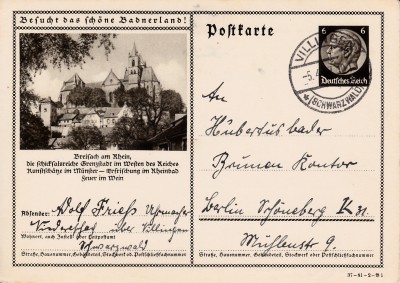 Besucht das schöne Badnerland!
Postkarte
6 6
Deutsches Reich
VILLINGEN
-5.4
(SCHWARZWALD)
Breisach am Rhein,
die schicksalsreiche Grenzstadt im Westen des Reiches
Kunstschätze im Münster – Erfrischung im Rheinbad
Feuer im Wein
An
Hubertusbader
Brunnen Kontor
Berlin Schöneberg
Mühlenstr 9.
Absender: Adolf Frieß Uhrmacher
über Villingen
Wohnort, auch Zustell- oder Leitpostamt
Schwarzwald
Straße, Hausnummer, Gebäudeteil, Stockwerk od. Postschließfachnummer
Straße, Hausnummer, Gebäudeteil, Stockwerk oder Postschließfachnummer
37-81-2-B1